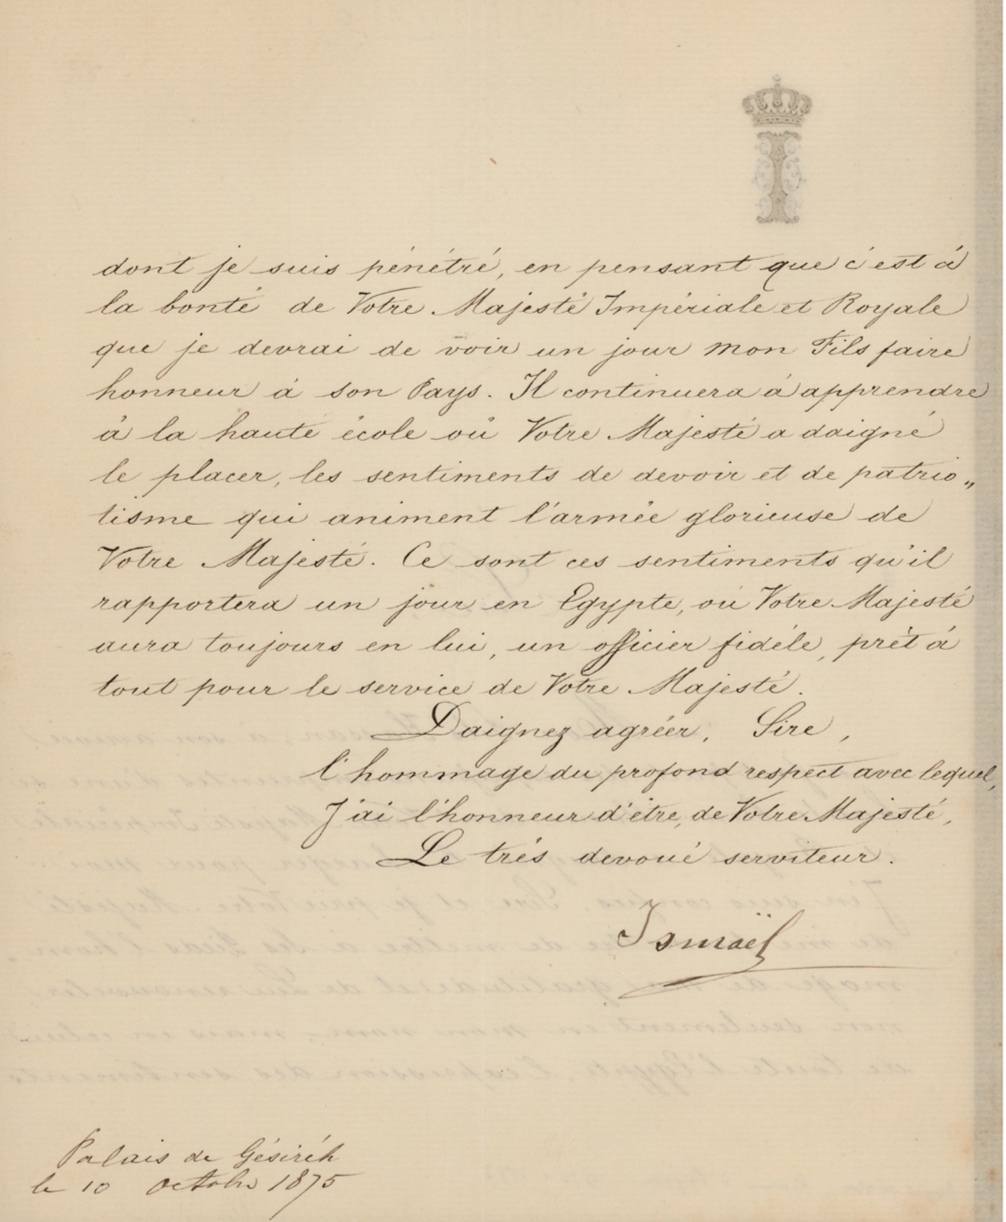 I
dont je suis pénétré, en pensant que c'est à
la bonté de Votre Majesté Impériale et Royale
que je devrai de voir un jour mon Fils faire
honneur à son Pays. Il continuera à apprendre
à la haute école où Votre Majesté a daigné
le placer, les sentiments de devoir et de patrio„
tisme qui animent l'armée glorieuse de
Votre Majesté. Ce sont ces sentiments qu'il
rapportera un jour en Egypte, où Votre Majesté
aura toujours en lui, un officier fidéle, prêt à
tout pour le service de Votre Majesté.
Daignez agréer, Sire,
l'hommage du profond respect avec lequel,
J'ai l'honneur d'être, de Votre Majesté,
Le trés devoué serviteur.
Ismaël
Palais de Gésiréh
le 10 octobre 1875